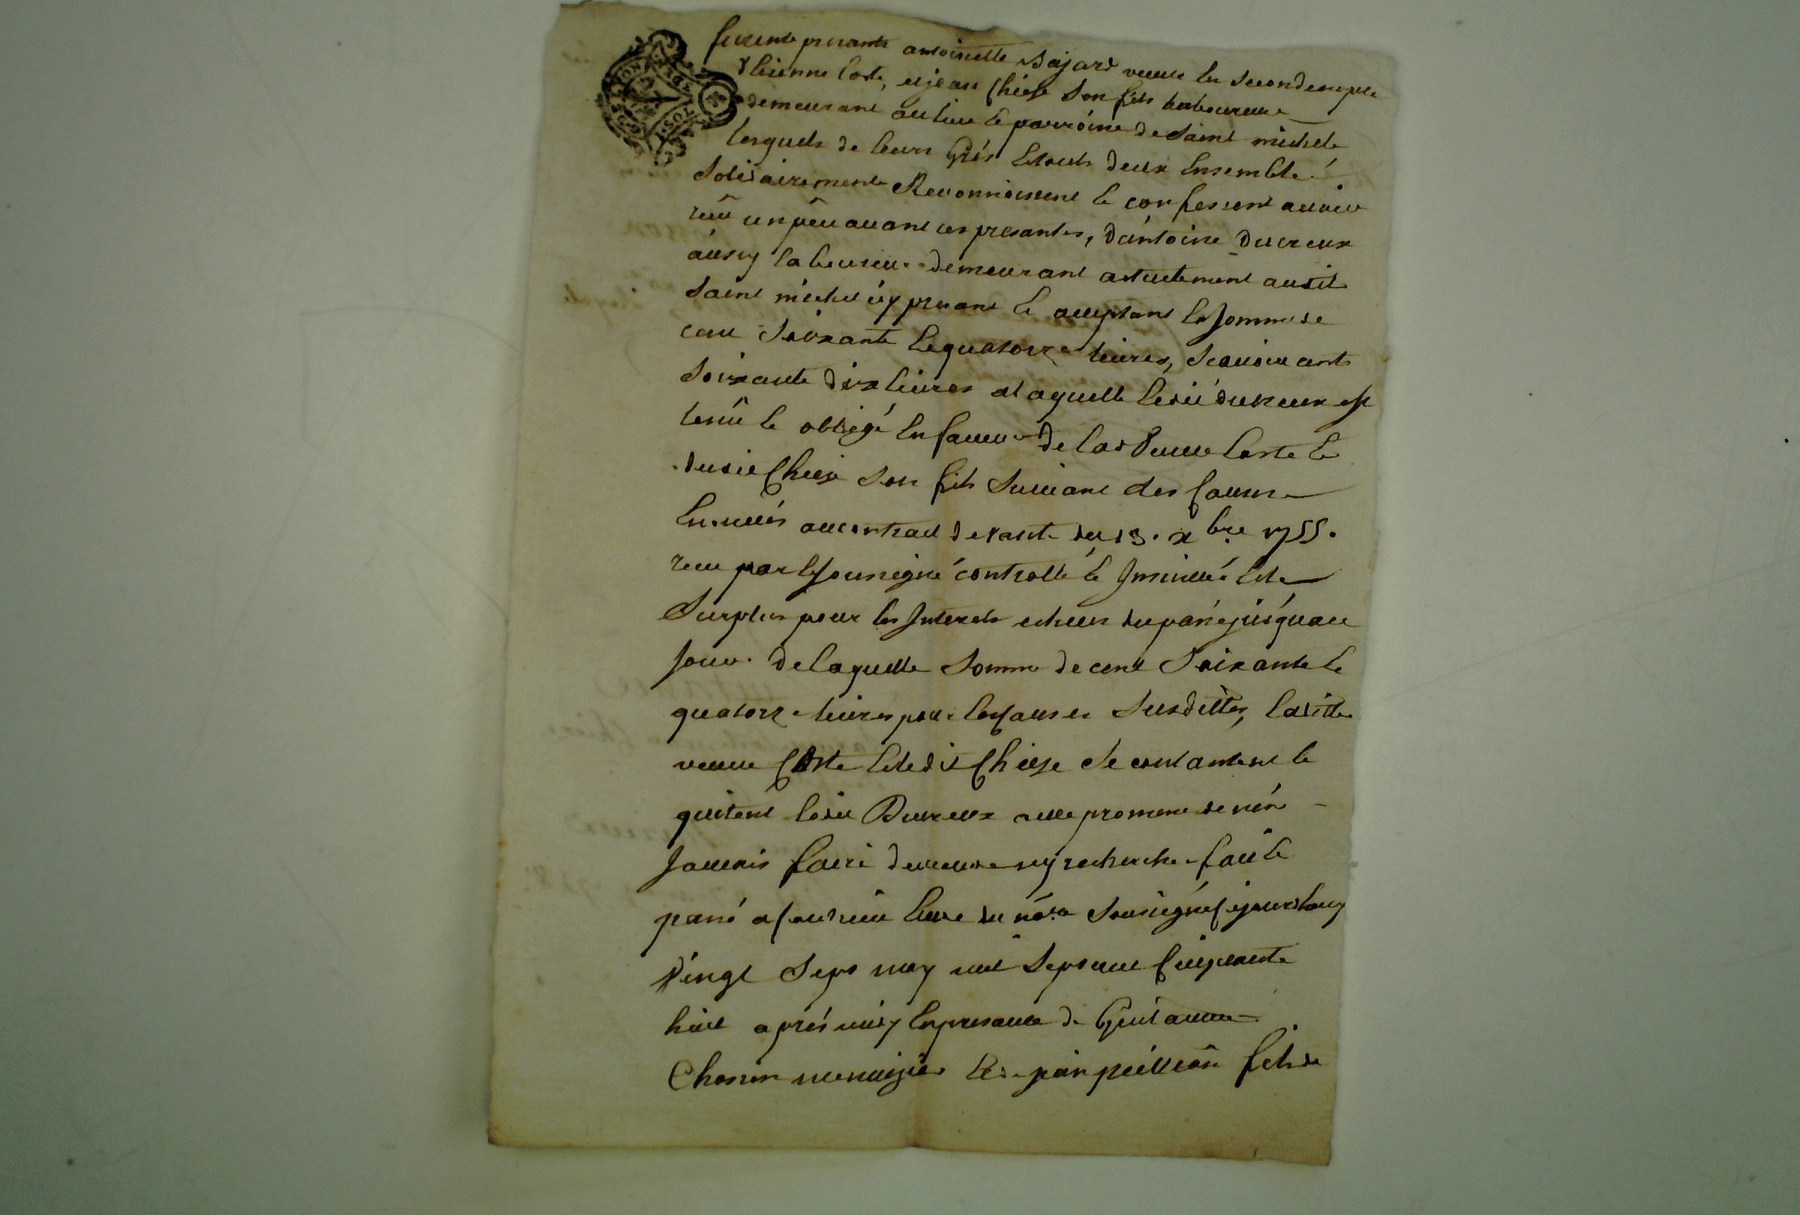 furent presants antoinette Bajard veuve en secondes nopces
d'etienne Coste, et jean Chieze son fils laboureur
demeurant au lieu et parroisse de Saint michel
lesquels de leurs grés et touts deux Ensemble
Solidairement Reconnoissent et confessent avoir
reçû un peu avant ces presantes, d'antoine Ducreux
aussy laboureur demeurant actuelement audit
Saint michel icy presant et acceptant la somme de
cent Soixante et quatorze livres, Scavoir cent
Soixante dix livres a laquelle ledit ducreux est
tenû et obligé en faveur de lad veuve Coste et
dudit Chieze Son fils Suivant des causes
Enoncées au contract de vante du 13. xbre 1755.
reçu par le soussigné controllé et Insinué et le
Surplus pour les Interets echeus du passé jusqu'au
jour de laquelle Somme de cent Soixante et
quatorze livres pour les causes Susdittes, laditte
veuve Coste et ledit Chieze Se contantent et
quitent ledit Ducreux avec promesse de n'en
Jamais faire demande ny recherche fait et
passé a Etude du no.re Soussigné cejourdhuy
vingt Sept may mil Sept cent Cinquante
huit après midy En presance de Guilaume
Chosson menuizier Et fils de